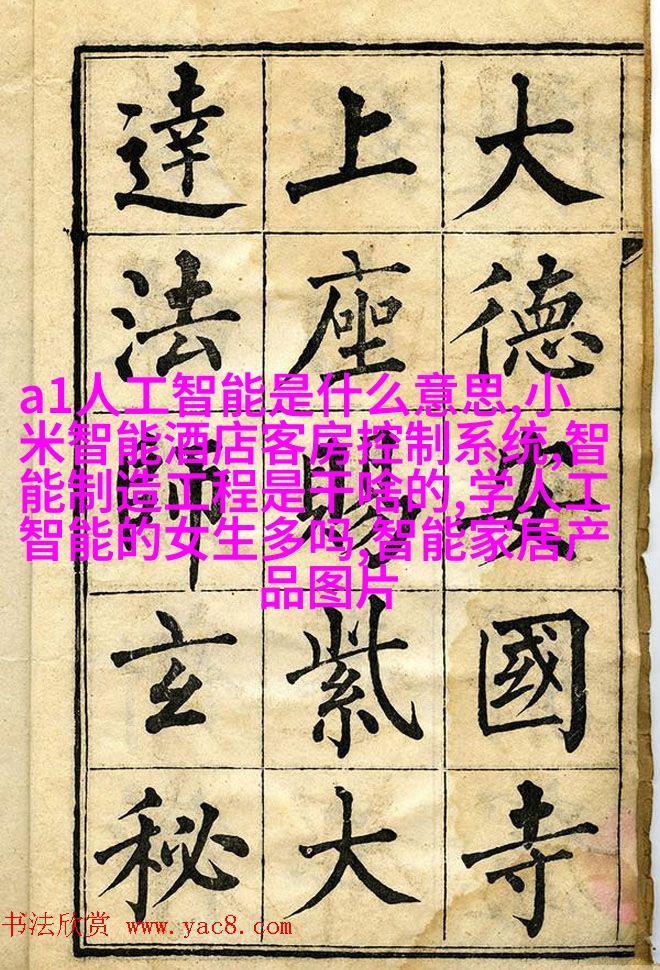 大德安國寺
上座賜紫大
達法師玄秘
a1人工智能是什么意思,小
米智能酒店客房控制系统,智
能制造工程是干啥的,学人工
智能的女生多吗,智能家居产
品图片
书法欣赏 www.yac8.com